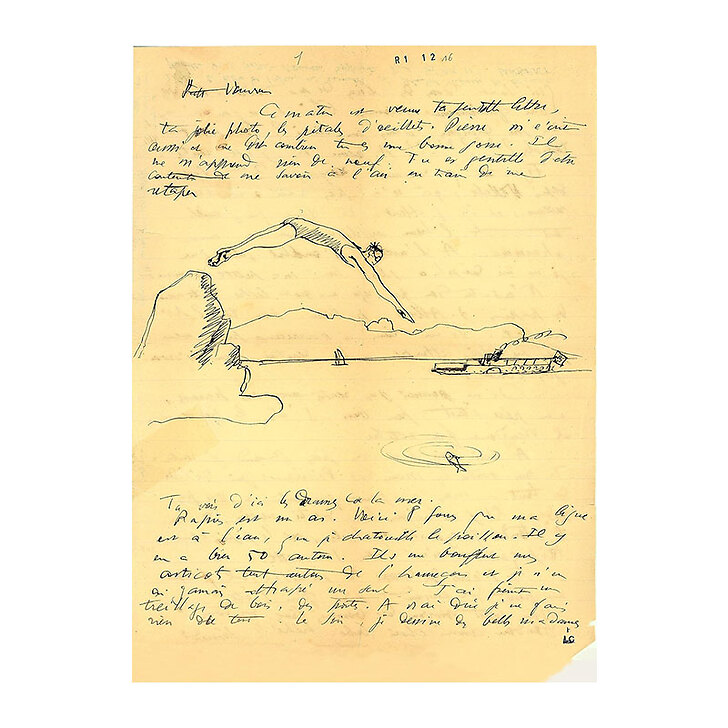 1
R1 12 16
Petit Vaurien
Ce matin est venue ta gentille lettre,
ta jolie photo, les pétales d'oeillets. Pierre m'écrit
aussi et me dit combien tu es une bonne gosse. Il
ne m'apprend rien de neuf. Tu es gentille d'être
contente de me savoir à l'air en train de me
retaper
Tu vois d'ici les dames la mer.
est un as. Voici 8 jours que ma ligne
est à l'eau, que je chatouille le poisson. Il y
en a bien 50 autour. Ils me bouffent mes
asticots tout autour de l'hameçon et je n'en
ai jamais attrapé un seul. J'ai peint un
treillage de bois, des portes. A vrai dire je ne fais
rien du tout. Le soir, je dessine des belles madames
LC